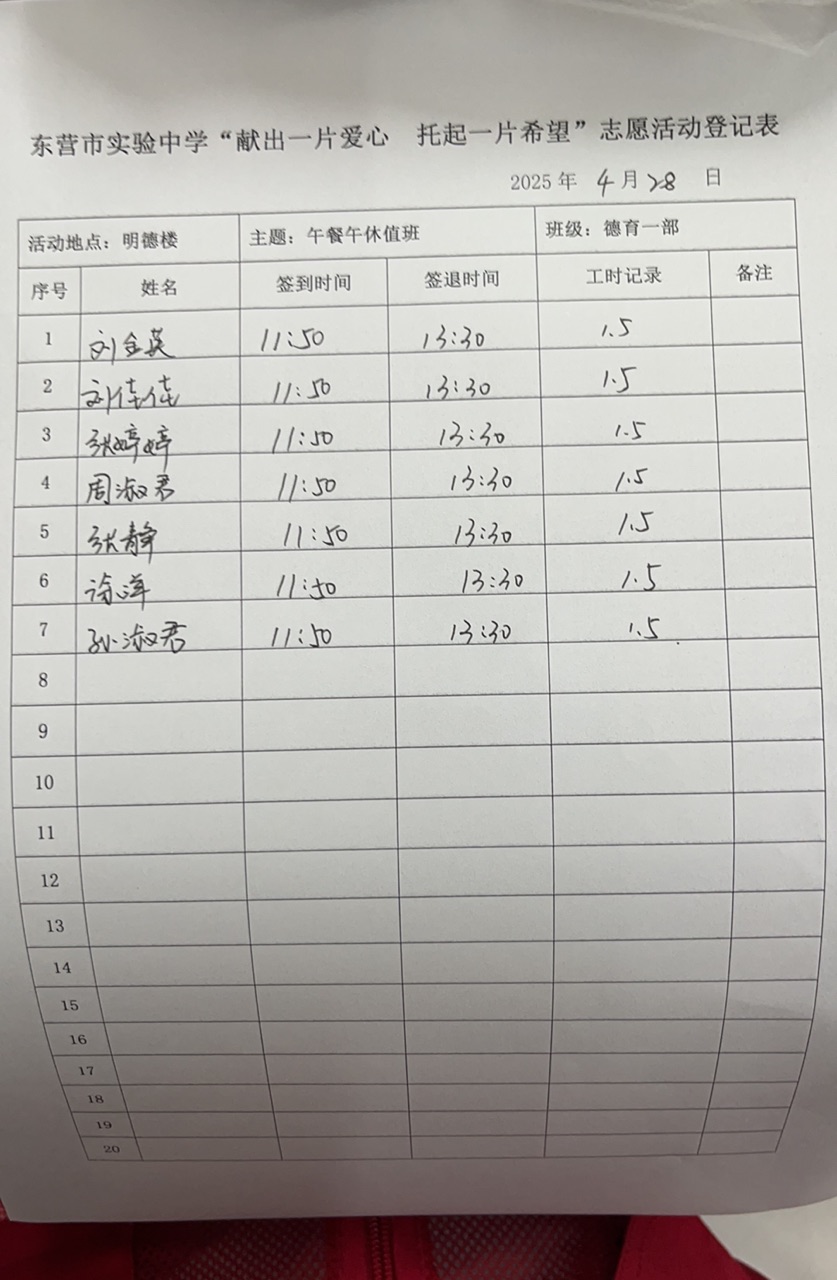 东营市实验中学“献出一片爱心 托起一片希望”志愿活动登记表
2025年 4月28 日
活动地点：明德楼 主题：午餐午休值班 班级：德育一部
序号 姓名 签到时间 签退时间 工时记录 备注
1 刘金英 11:50 13:30 1.5
2 刘佳佳 11:50 13:30 1.5
3 张婷婷 11:50 13:30 1.5
4 周淑君 11:50 13:30 1.5
5 张静 11:50 13:30 1.5
6 徐萍 11:50 13:30 1.5
7 孙淑君 11:50 13:30 1.5
8
9
10
11
12
13
14
15
16
17
18
19
20